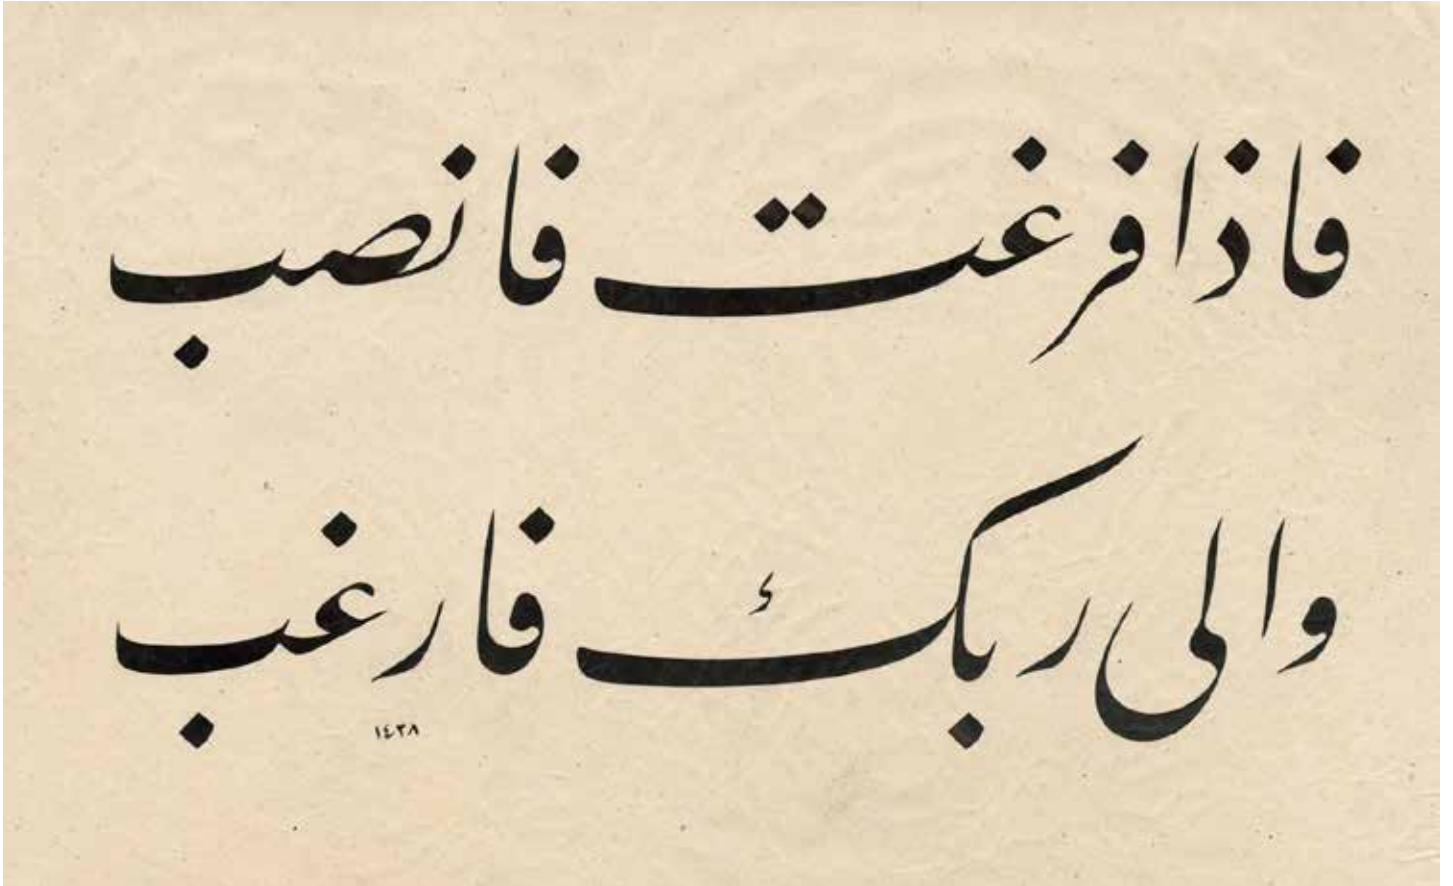 فاذا فرغت فانصب
والى ربك فارغب
١٤٣٨